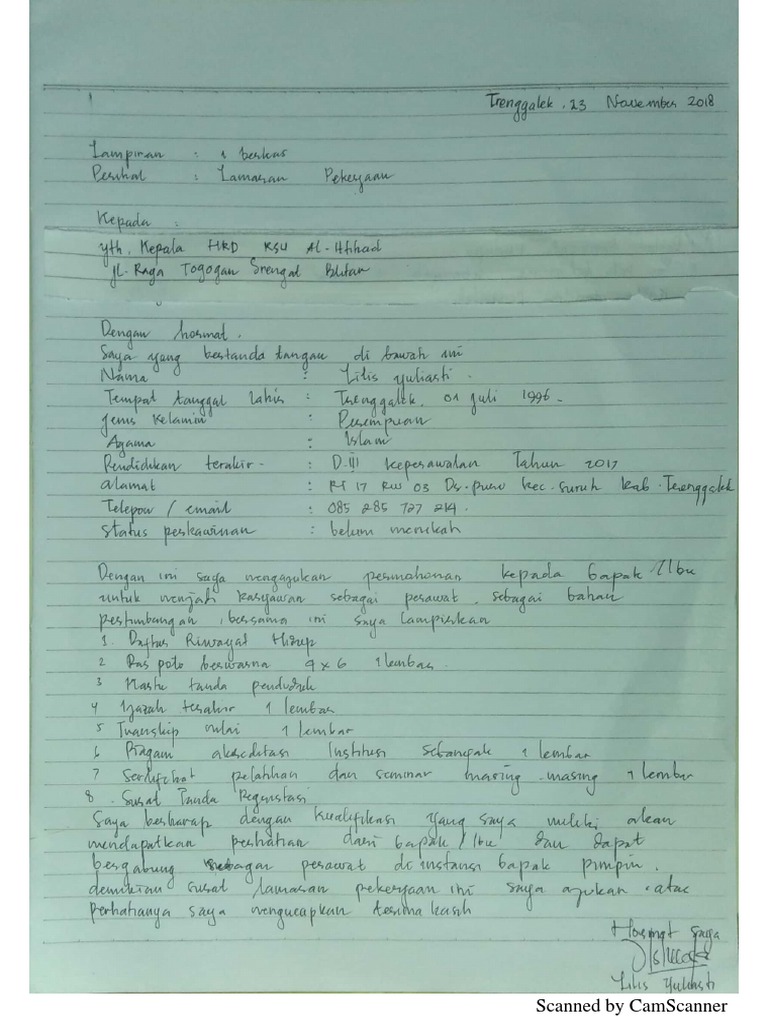 Trenggalek, 23 November 2018
Lampiran : 1 berkas
Perihal : Lamaran Pekerjaan
Kepada :
yth. Kepala HRD RSU Al-Ittihad
jl. Raya Togogan Srengat Blitar
Dengan hormat.
Saya yang bertanda tangan di bawah ini
Nama : Lilis Yuliasti.
Tempat tanggal lahir : Trenggalek, 01 juli 1996
Jenis Kelamin : Perempuan
Agama : Islam
Pendidikan terakir : D-III keperawatan Tahun 2017
alamat : Rt 17 Rw 03 Ds. puru kec. suruh kab. Trenggalek
Telepon / email : 085 285 727 214.
Status perkawinan : belum menikah
Dengan ini saya mengajukan permohonan kepada bapak / Ibu
untuk menjadi karyawan sebagai perawat. sebagai bahan
pertimbangan, bersama ini saya lampirkan
1. Daftar Riwayat Hidup
2 Pas poto berwarna 4 x 6 1 lembar.
3 Kartu tanda penduduk
4 Ijazah terakir 1 lembar
5 Transkip nilai 1 lembar
6 Piagam akreditasi Institusi sebanyak 1 lembar
7 Sertifikat pelatihan dan seminar masing-masing 1 lembar
8. Surat Tanda Registrasi
Saya berharap dengan kualifikasi yang saya miliki akan
mendapatkan perhatian dari bapak / Ibu dan dapat
bergabung sebagai perawat di instansi bapak pimpin.
demikian surat lamaran pekerjaan ini saya ajukan. atas
perhatianya saya mengucapkan terima kasih
Hormat saya
Lilis Yuliasti
Scanned by CamScanner